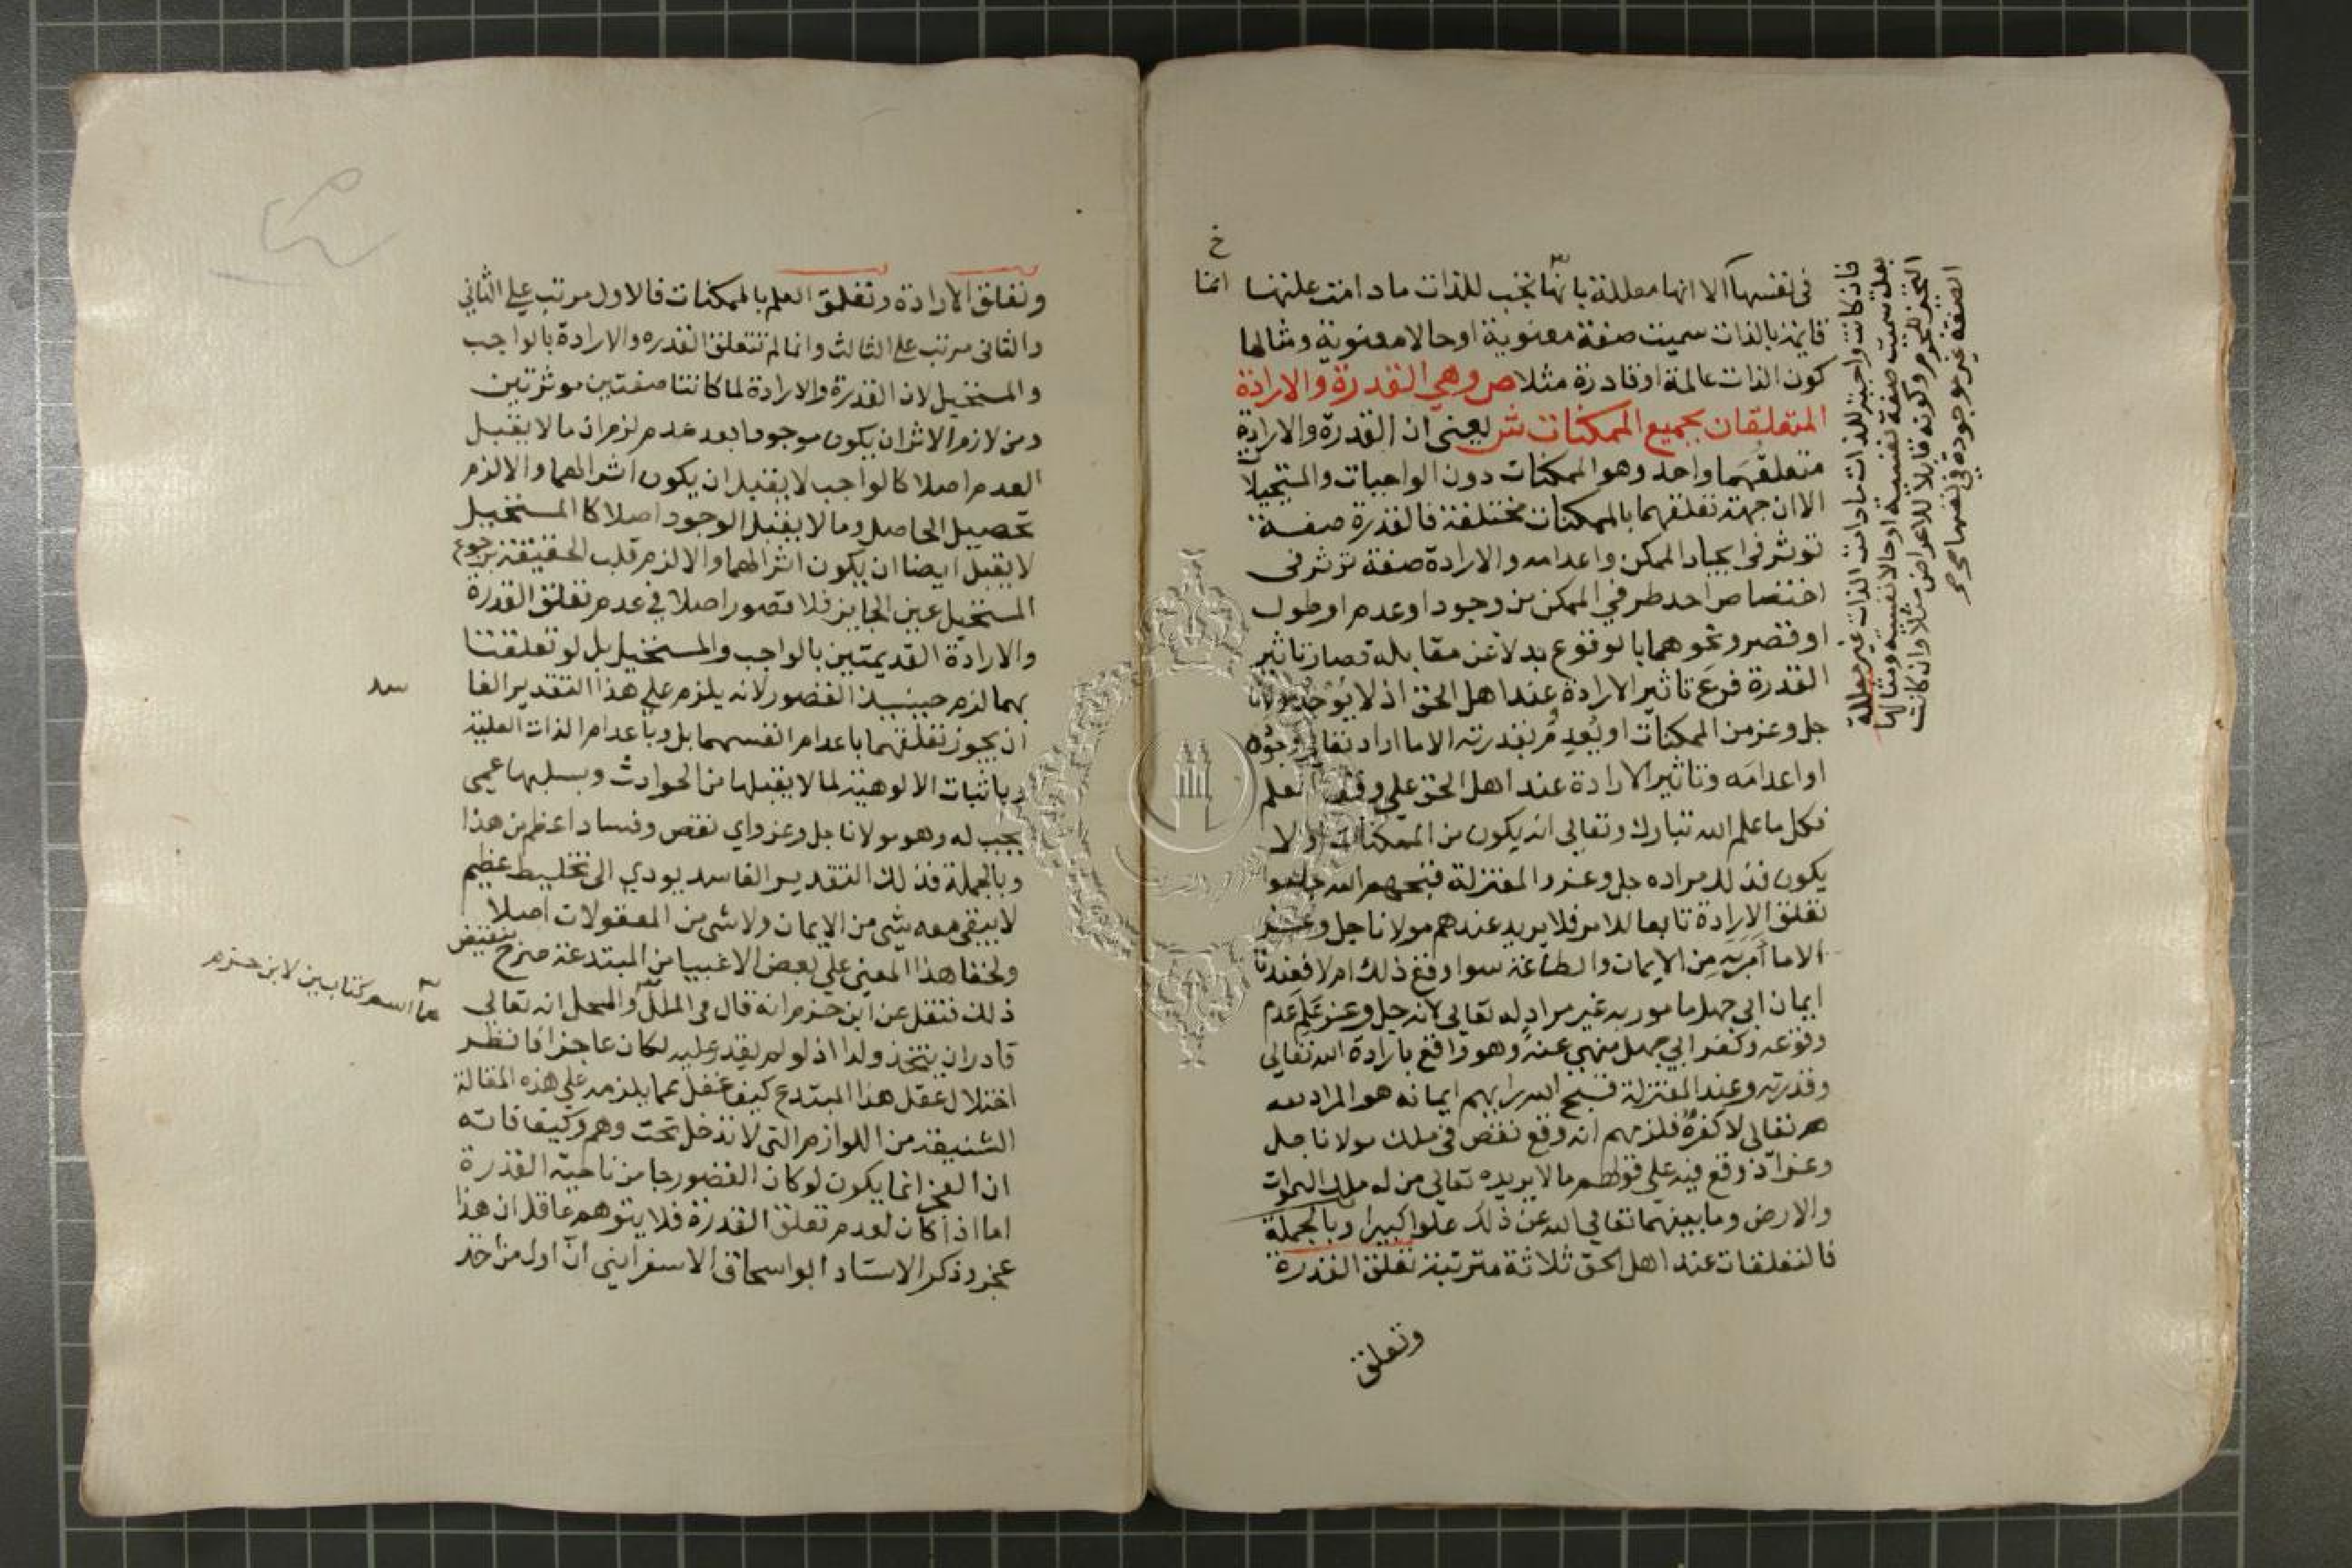 في نفسها الا انها معللة بانها تجب للذات ما دامت علتها
قايمة بالذات سميت صفة معنوية او حالا معنوية ومثالها
كون الذات عالمة او قادرة مثلا ص وهي القدرة والارادة
المتعلقان بجميع الممكنات ش يعني ان القدرة والارادة
متعلقهما واحد وهو الممكنات دون الواجبات والمستحيلا
الا ان جهة تعلقهما بالممكنات مختلفة فالقدرة صفة
توثر في ايجاد الممكن واعدامه والارادة صفة توثر في
اختصاص احد طرفي الممكن من وجود او عدم او طول
او قصر ونحوهما بالوقوع بدلا عن مقابله فصار تاثير
القدرة فرع تاثير الارادة عند اهل الحق اذ لا يوجد مولانا
جل وعز من الممكنات او يعدم بقدرته الا ما اراد تعالى وجوده
او اعدامه وتاثير الارادة عند اهل الحق على وفق العلم
فكل ما علم الله تبارك وتعالى انه يكون من الممكنات او لا
يكون فذلك مراده جل وعز والمعتزلة قبحهم الله جعلوا
تعلق الارادة تابعا للامر فلا يريد عندهم مولانا جل وعز
الا ما امر به من الايمان والطاعة سوا وقع ذلك ام لا فعندنا
ايمان ابي جهل مامور به غير مراد له تعالى لانه جل وعز علم عدم
وقوعه وكفر ابي جهل منهي عنه وهو واقع بارادة الله تعالى
وقدرته وعند المعتزلة قبح الله رايهم ايمانه هو المراد لله
تعالى لا كفره فلزمهم انه وقع نقص في ملك مولانا جل
وعز اذ وقع فيه على قولهم ما لا يريده تعالى من له ملك السموات
والارض وما بينهما تعالى الله عن ذلك علوا كبيرا وبالجملة
فالتعلقات عند اهل الحق ثلاثة مترتبة تعلق القدرة
وتعلق
خ
انها
فان كانت واجبة للذات ما دامت الذات غير معللة
بعلة سميت صفة نفسية او حالا نفسية ومثالها
التحيز للجرم وكونه قابلا للاعراض مثلا وان كانت
الصفة غير موجودة في نفسها صح
وتعلق الارادة وتعلق العلم بالممكنات فالاول مرتب على الثاني
والثاني مرتب على الثالث وانما لم تتعلق القدره والارادة بالواجب
والمستحيل لان القدرة والارادة لما كانتا صفتين موثرتين
ومن لازم الاثر ان يكون موجودا بعد عدم لزم ان ما لا يقبل
العدم اصلا كالواجب لا يقبل ان يكون اثرا لهما والا لزم
تحصيل الحاصل وما لا يقبل الوجود اصلا كالمستحيل
لا يقبل ايضا ان يكون اثرا لهما والا لزم قلب الحقيقة برجوع
المستحيل عين الجايز فلا قصور اصلا في عدم تعلق القدرة
والارادة القديمتين بالواجب والمستحيل بل لو تعلقتا
بهما لزم حينيذ القصور لانه يلزم على هذا التقدير الفا
سد
ان يجوز تعلقهما باعدام انفسهما بل وباعدام الذات العلية
وباثبات الالوهية لما لا يقبلها من الحوادث وبسلبها عمن
يجب له وهو مولانا جل وعز واي نقص وفساد اعظم من هذا
وبالجملة فذلك التقدير الفاسد يودي الى تخليط عظيم
لا يبقى معه شي من الايمان ولا شي من المعقولات اصلا
ولخفا هذا المعنى على بعض الاغبيا من المبتدعة صرح بنقيض
ذلك فنقل عن ابن حزم انه قال في الملل والنحل انه تعالى
هما اسم كتابين لابن حزم
قادر ان يتخذ ولدا اذ لو لم يقدر عليه لكان عاجزا فانظر
اختلال عقل هذا المبتدع كيف غفل عما يلزمه على هذه المقالة
الشنيعة من اللوازم التي لا تدخل تحت وهم وكيف فاته
ان العجز انما يكون لو كان القصور جا من ناحية القدرة
اما اذا كان لعدم تعلق القدرة فلا يتوهم عاقل ان هذا
عجز وذكر الاستاد ابو اسحاق الاسفرايني ان اول من اخذ